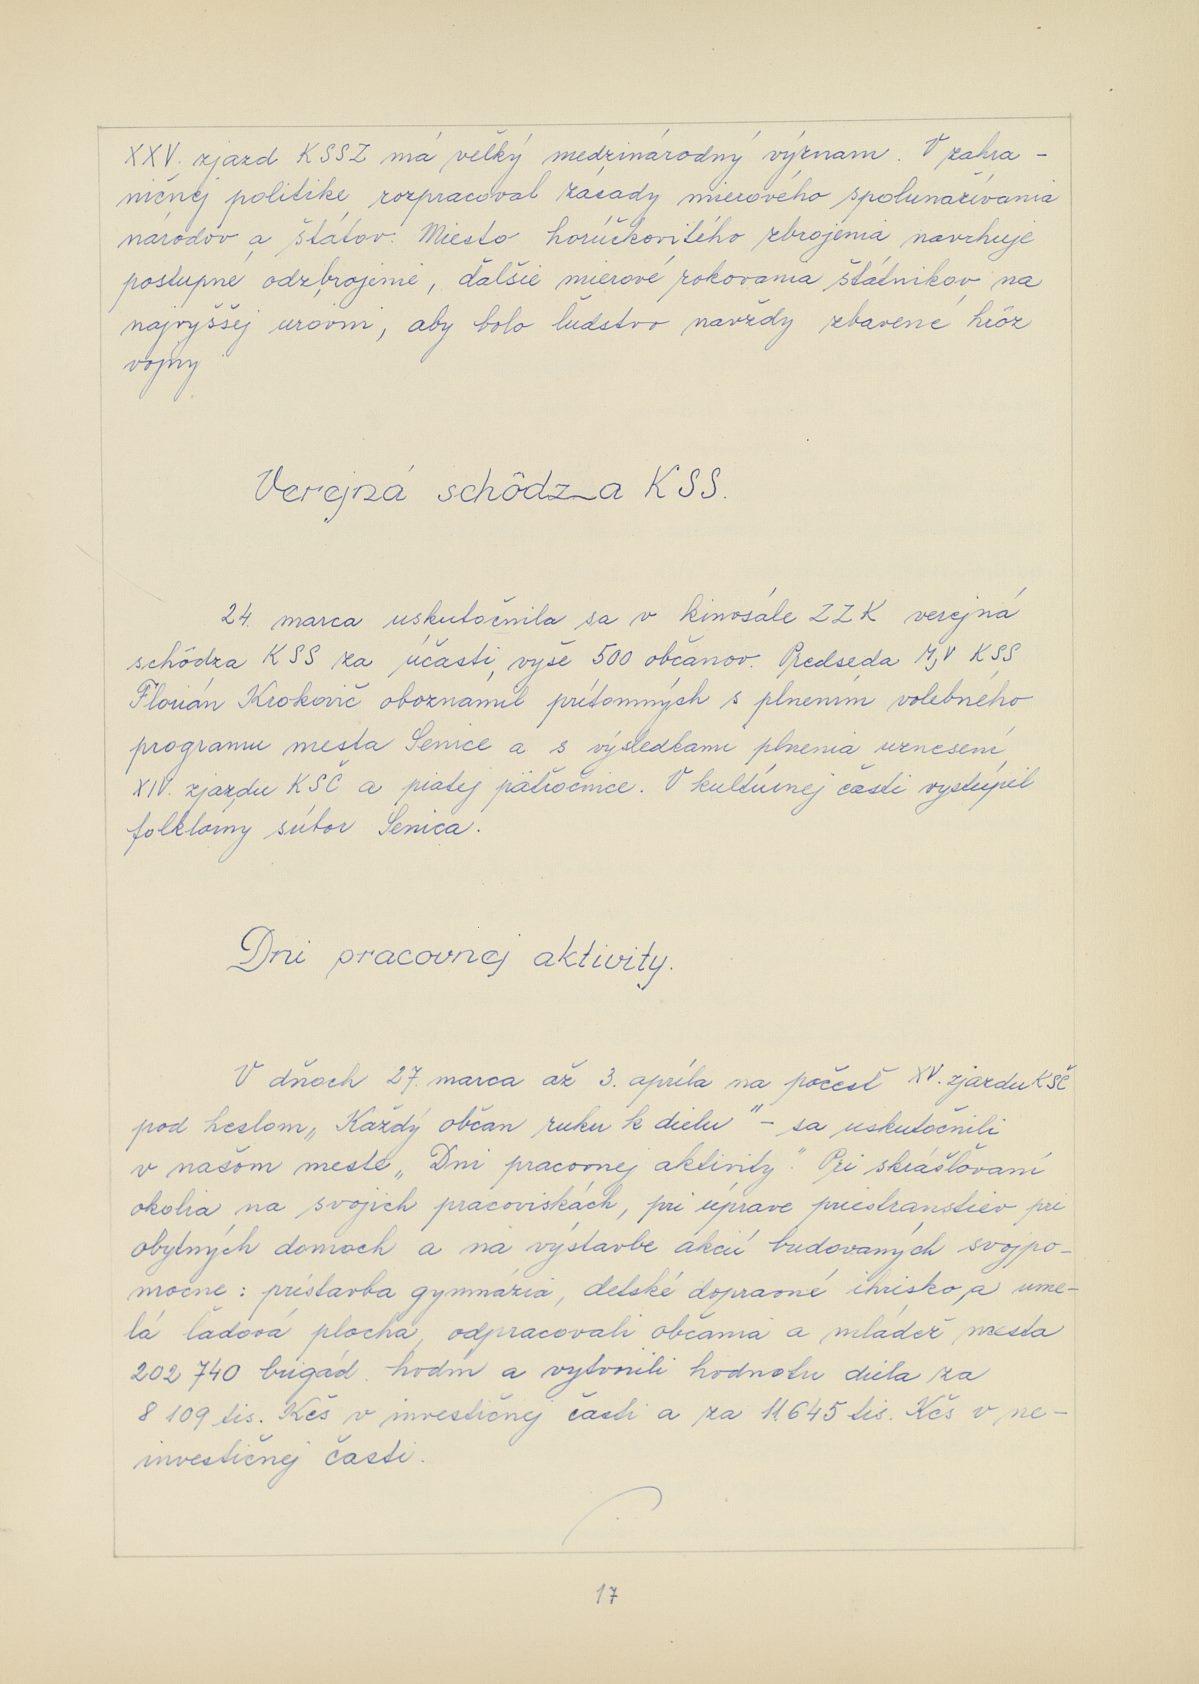 XXV. zjazd KSSZ má veľký medzinárodný význam. V zahra-
ničnej politike rozpracoval zásady mierového spolunažívania
národov a štátov. Miesto horúčkovitého zbrojenia navrhuje
postupné odzbrojenie, ďalšie mierové rokovania štátnikov na
najvyššej úrovni, aby bolo ľudstvo navždy zbavené hrôz
vojny
Verejná schôdza KSS.
24. marca uskutočnila sa v kinosále ZZK verejná
schôdza KSS za účasti vyše 500 občanov. Predseda MsV KSS
Florián Krokovič oboznámil prítomných s plnením volebného
programu mesta Senice a s výsledkami plnenia uznesení
XIV. zjazdu KSČ a piatej päťročnice. V kultúrnej časti vystúpil
folklorny súbor Senica.
Dni pracovnej aktivity.
V dňoch 27. marca až 3. apríla na počesť XV. zjazdu KSČ
pod heslom „Každý občan ruku k dielu" - sa uskutočnili
v našom meste „Dni pracovnej aktivity". Pri skrášľovaní
okolia na svojich pracoviskách, pri úprave priestranstiev pri
obytných domoch a na výstavbe akcií budovaných svojpo-
mocne: prístavba gymnázia, detské dopravné ihrisko, a ume-
lá ľadová plocha, odpracovali občania a mládež mesta
202 740 brigád. hodín a vytvorili hodnotu diela za
8 109 tis. Kčs v investičnej časti a za 11645 tis. Kčs v ne-
investičnej časti.
17